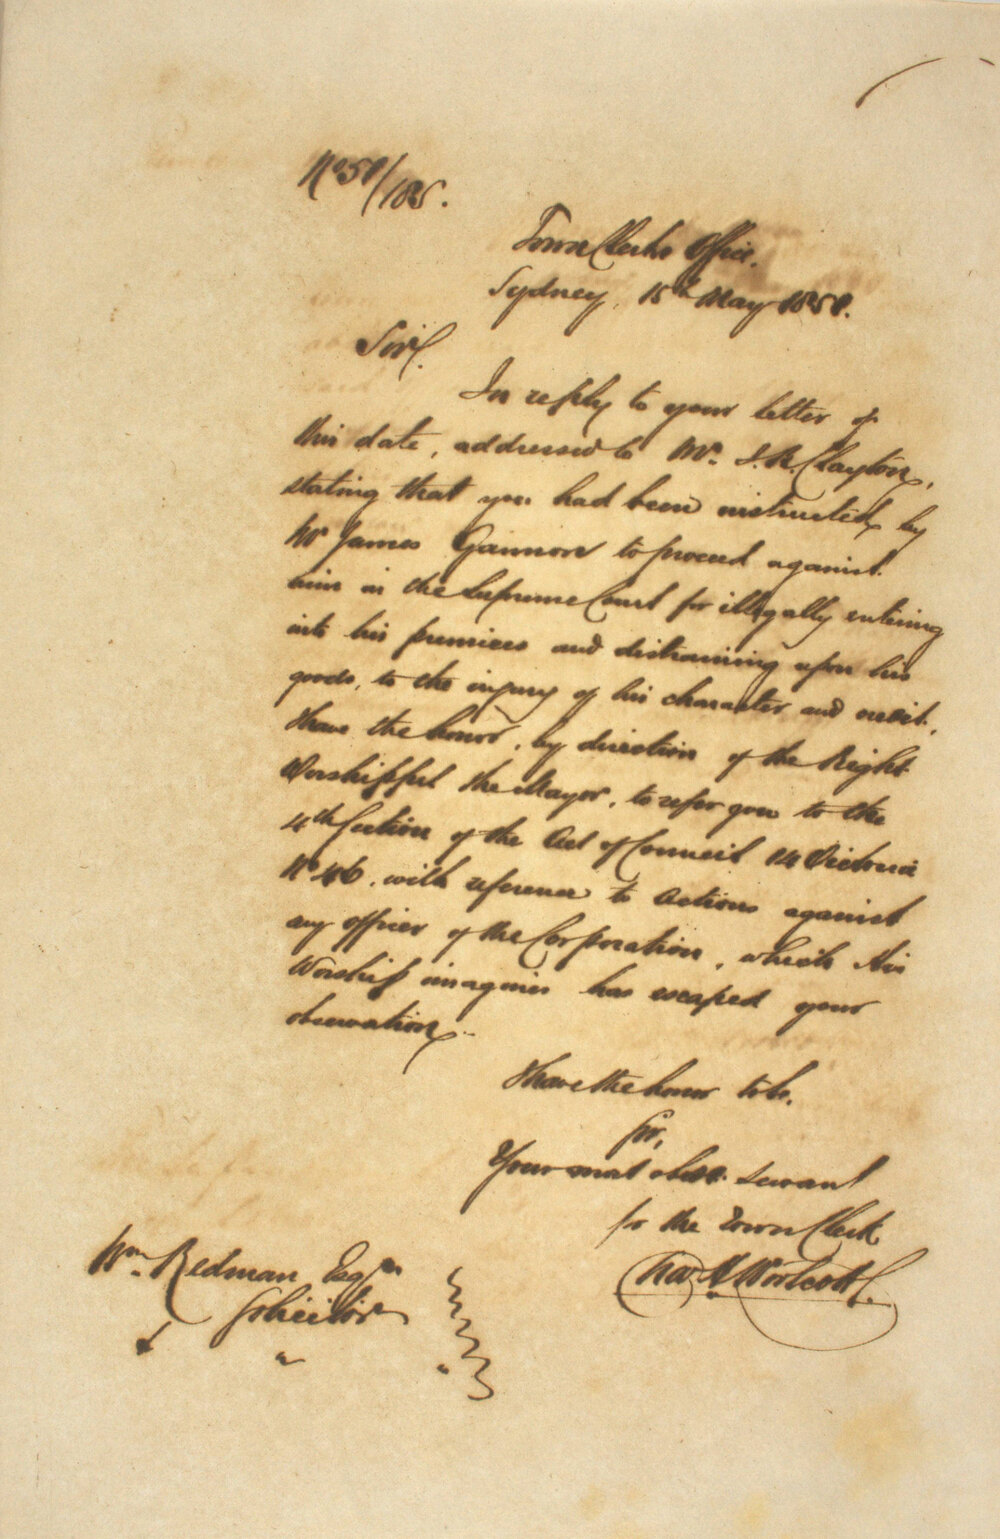 No 58/185.
Town Clerks Office.
Sydney, 15th May 1858.
Sir,
In reply to your letter of
this date, addressed to Mr. J. R. Clayton,
stating that you had been instructed by
Mr James Gannon to proceed against
him in the Supreme Court for illegally entering
into his premises and distraining upon his
goods, to the injury of his character and credit,
I have the honor, by direction of the Right
Worshipful the Mayor, to refer you to the
4th Section of the Act of Council 14 Victoria
No 46, with reference to Actions against
any officer of the Corporation, which His
Worship imagines has escaped your
observation.
I have the honor to be.
Sir,
Your most obdt. servant
for the Town Clerk
Chas H Woolcott
Wm Redman Esqre
Solicitor